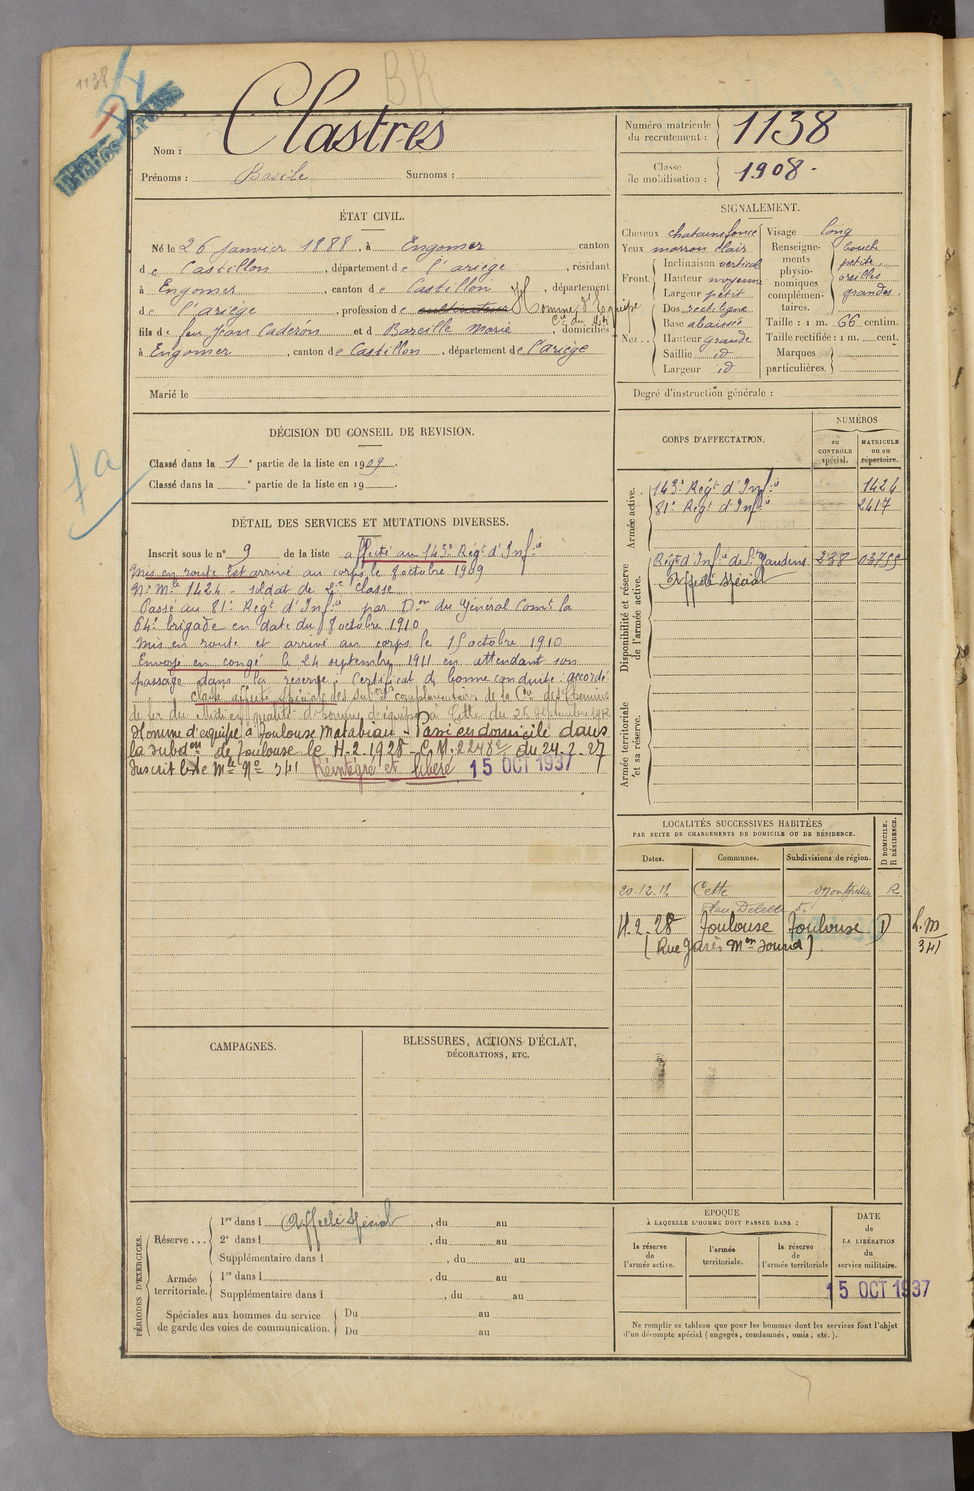 1138
BR
Nom : Clastres
Prénoms : Basile Surnoms :
Numéro matricule du recrutement : 1138
Classe de mobilisation : 1908.
ÉTAT CIVIL.
Né le 26 janvier 1888, à Engomer canton
de Castillon, département de l'ariège, résidant
à Engomer, canton de Castillon, département
de l'ariège, profession de cultivateur Homme d'équipe
Cie du Midi
fils de feu Jean Caderon et de Bareille Marie, domiciliés
à Engomer, canton de Castillon, département de l'ariège
Marié le
SIGNALEMENT.
Cheveux chatains foncé
Yeux marron clair
Front. Inclinaison vertical
Hauteur moyenne
Largeur petit
Nez.. Dos rectiligne
Base abaissée
Hauteur grande
Saillie id
Largeur id
Visage long
Renseignements physionomiques complémentaires. bouche petite, oreilles grandes.
Taille : 1 m. 66 centim.
Taille rectifiée : 1 m. cent.
Marques particulières.
Degré d'instruction générale :
DÉCISION DU CONSEIL DE REVISION.
1a
Classé dans la 1e partie de la liste en 1909.
Classé dans la e partie de la liste en 19
DÉTAIL DES SERVICES ET MUTATIONS DIVERSES.
Inscrit sous le n° 9 de la liste affecté au 143e Régt d'Infie
Mis en route et arrivé au corps le 8 octobre 1909
No Mle 1424 - soldat de 2e classe
Passé au 81e Régt d'Infie par Don du Général Comt la
64e brigade en date du 8 octobre 1910
Mis en route et arrivé au corps le 15 octobre 1910
Envoyé en congé le 24 septembre 1911 en attendant son
passage dans la réserve. Certificat de bonne conduite : accordé
Classé affecté spécial des subons complémentaires de la Cie des Chemins
de fer du Midi en qualité d'homme d'équipe à Cette du 25 septembre 1912
Homme d'équipe à Toulouse Matabiau - Passé en domicile dans
la subdon de Toulouse le 4-2-1928 - C.M. du 24-2-27
Inscrit liste Mle No 341 Réintégré et libéré 15 OCT 1937
CORPS D'AFFECTATION.
NUMÉROS
AU CONTRÔLE spécial.
MATRICULE ou au répertoire.
Armée active.
143e Régt d'Infie 1424
81e Régt d'Infie 2417
Disponibilité et réserve de l'armée active.
Régt d'Infie de St Gaudens 238 03755
Affecté spécial
Armée territoriale et sa réserve.
LOCALITÉS SUCCESSIVES HABITÉES
PAR SUITE DE CHANGEMENTS DE DOMICILE OU DE RÉSIDENCE.
Dates. Communes. Subdivisions de région. D DOMICILE. R RÉSIDENCE.
20.12.11. Cette Montpellier R
4.2.28 Toulouse Toulouse D
L.M
341
CAMPAGNES.
BLESSURES, ACTIONS D'ÉCLAT,
DÉCORATIONS, ETC.
PÉRIODES D'EXERCICES.
Réserve... 1re dans l Affecté spécial, du au
2e dans l, du au
Supplémentaire dans l, du au
Armée territoriale. 1re dans l, du au
Supplémentaire dans l, du au
Spéciales aux hommes du service de garde des voies de communication. Du au
Du au
ÉPOQUE
À LAQUELLE L'HOMME DOIT PASSER DANS :
la réserve de l'armée active.
l'armée territoriale.
la réserve de l'armée territoriale
DATE de LA LIBÉRATION du service militaire.
15 OCT 1937
Ne remplir ce tableau que pour les hommes dont les services font l'objet
d'un décompte spécial (engagés, condamnés, omis, etc.).